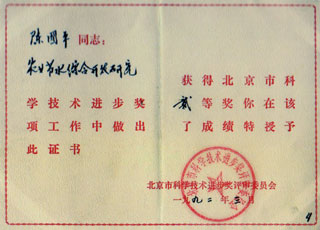 陈国平同志：
农业节水综合开发研究
获得北京市科
学技术进步奖
贰等奖你在该
项工作中做出
了成绩特授予
此证书
北京市科学技术进步奖评审委员会
一九九二年三月